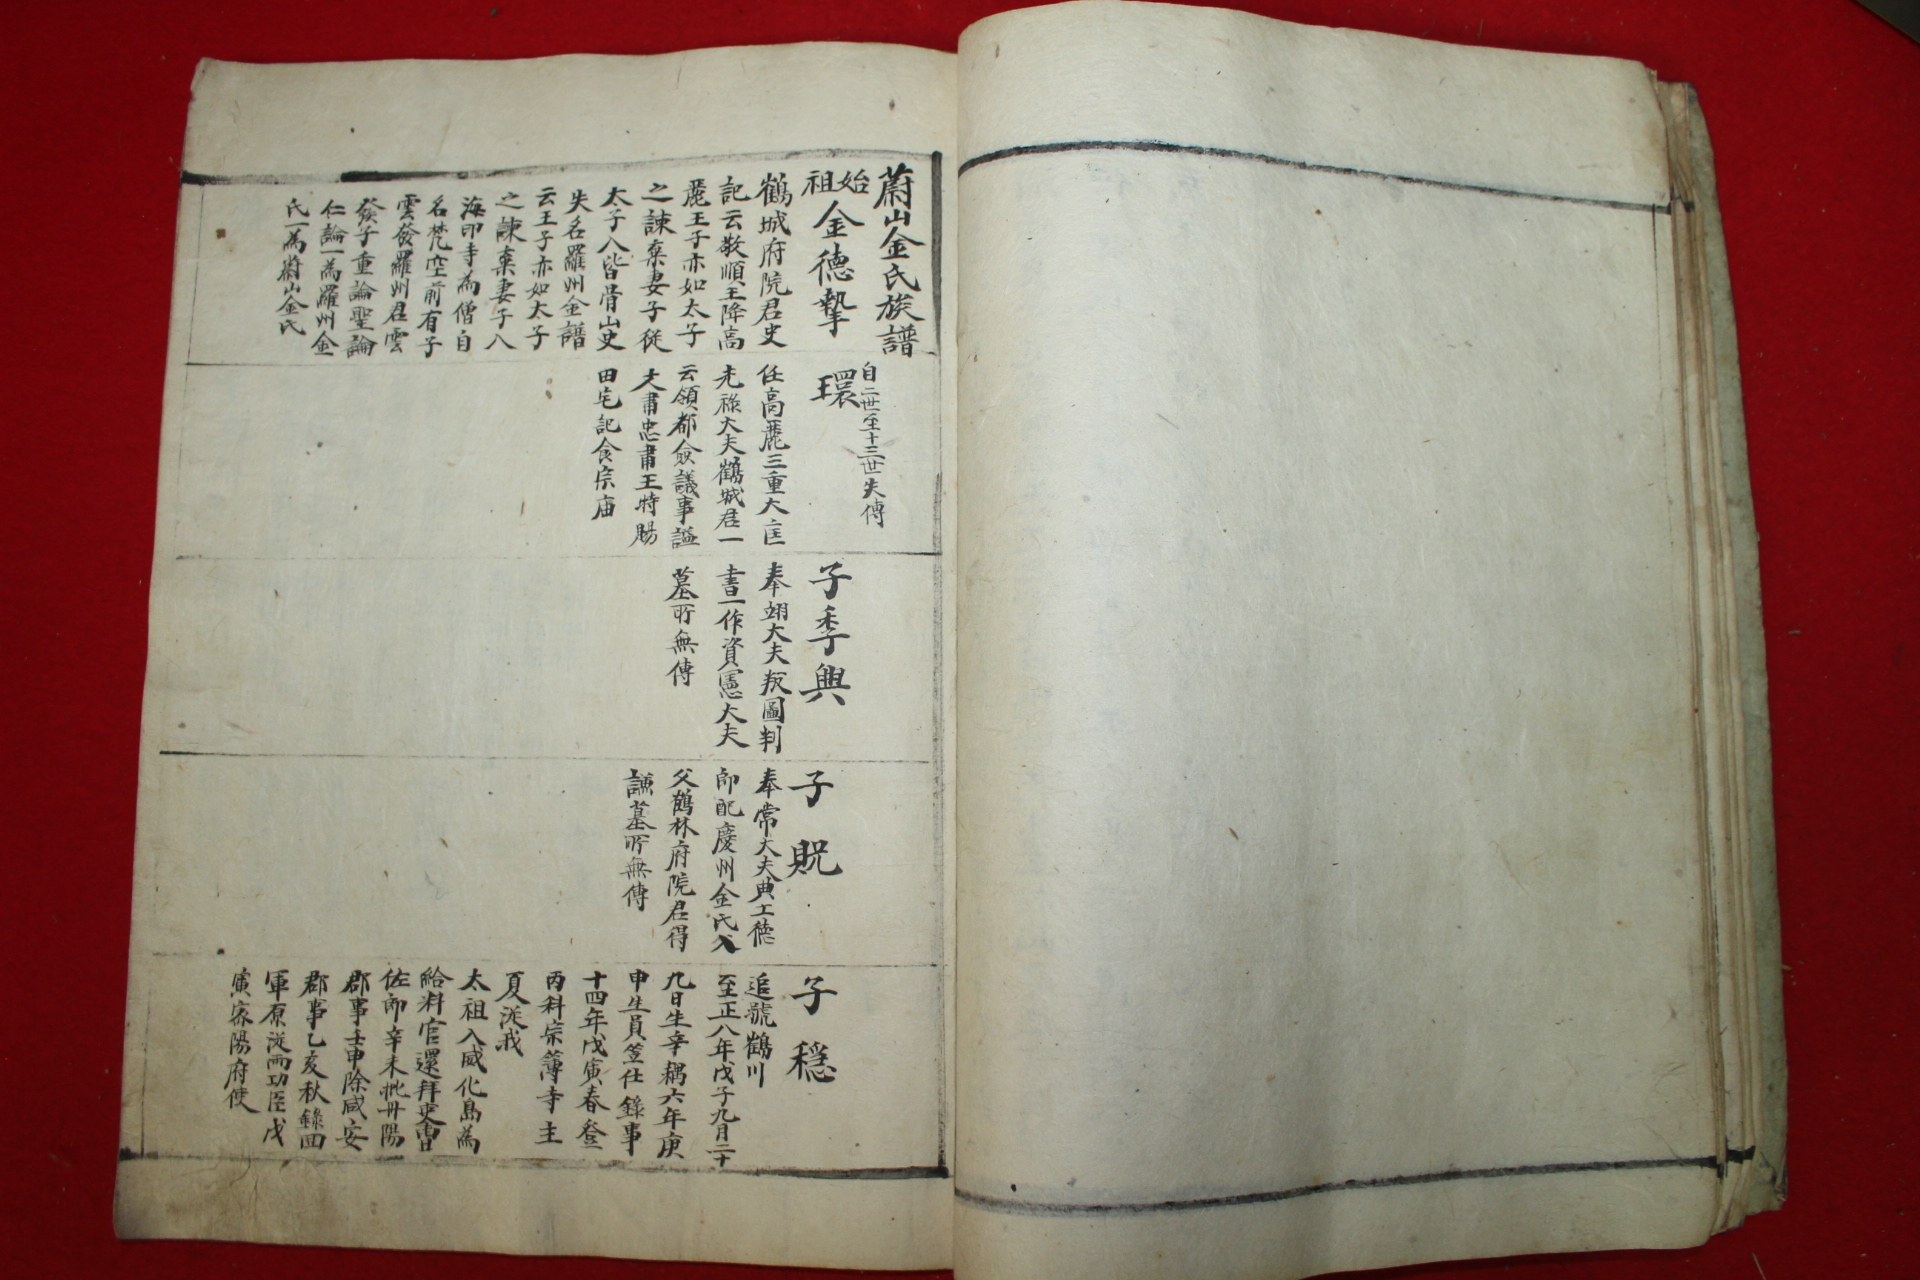 蔚山金氏族譜
始祖 金德摯
鶴城府院君史
記云敬順王降高
麗王子亦如太子
之諫棄妻子從
太子入皆骨山史
失名羅州金譜
云王子亦如太子
之諫棄妻子入
海印寺為僧自
名梵空前有子
雲發羅州君雲
發子重論聖論
仁論一為羅州金
氏一為蔚山金氏
自二世至十三世失傳
環
任高麗三重大匡
光祿大夫鶴城君一
云領都僉議事謚
大肅忠肅王特賜
田宅記食宗庙
子季興
奉翊大夫版圖判
書一作資憲大夫
墓所無傳
子貺
奉常大夫典工德
郎配慶州金氏
父鶴林府院君得
謙墓所無傳
子穩
追號鶴川
至正八年戊子九月二十
九日生辛禑六年庚
申生員筮仕錄事
十四年戊寅春登
丙科宗簿寺主
夏從我
太祖入威化島為
給料官還拜吏曹
佐郎辛未批丹陽
郡事壬申除咸安
郡事乙亥秋錄四
軍原從両功臣戊
寅家陽府使